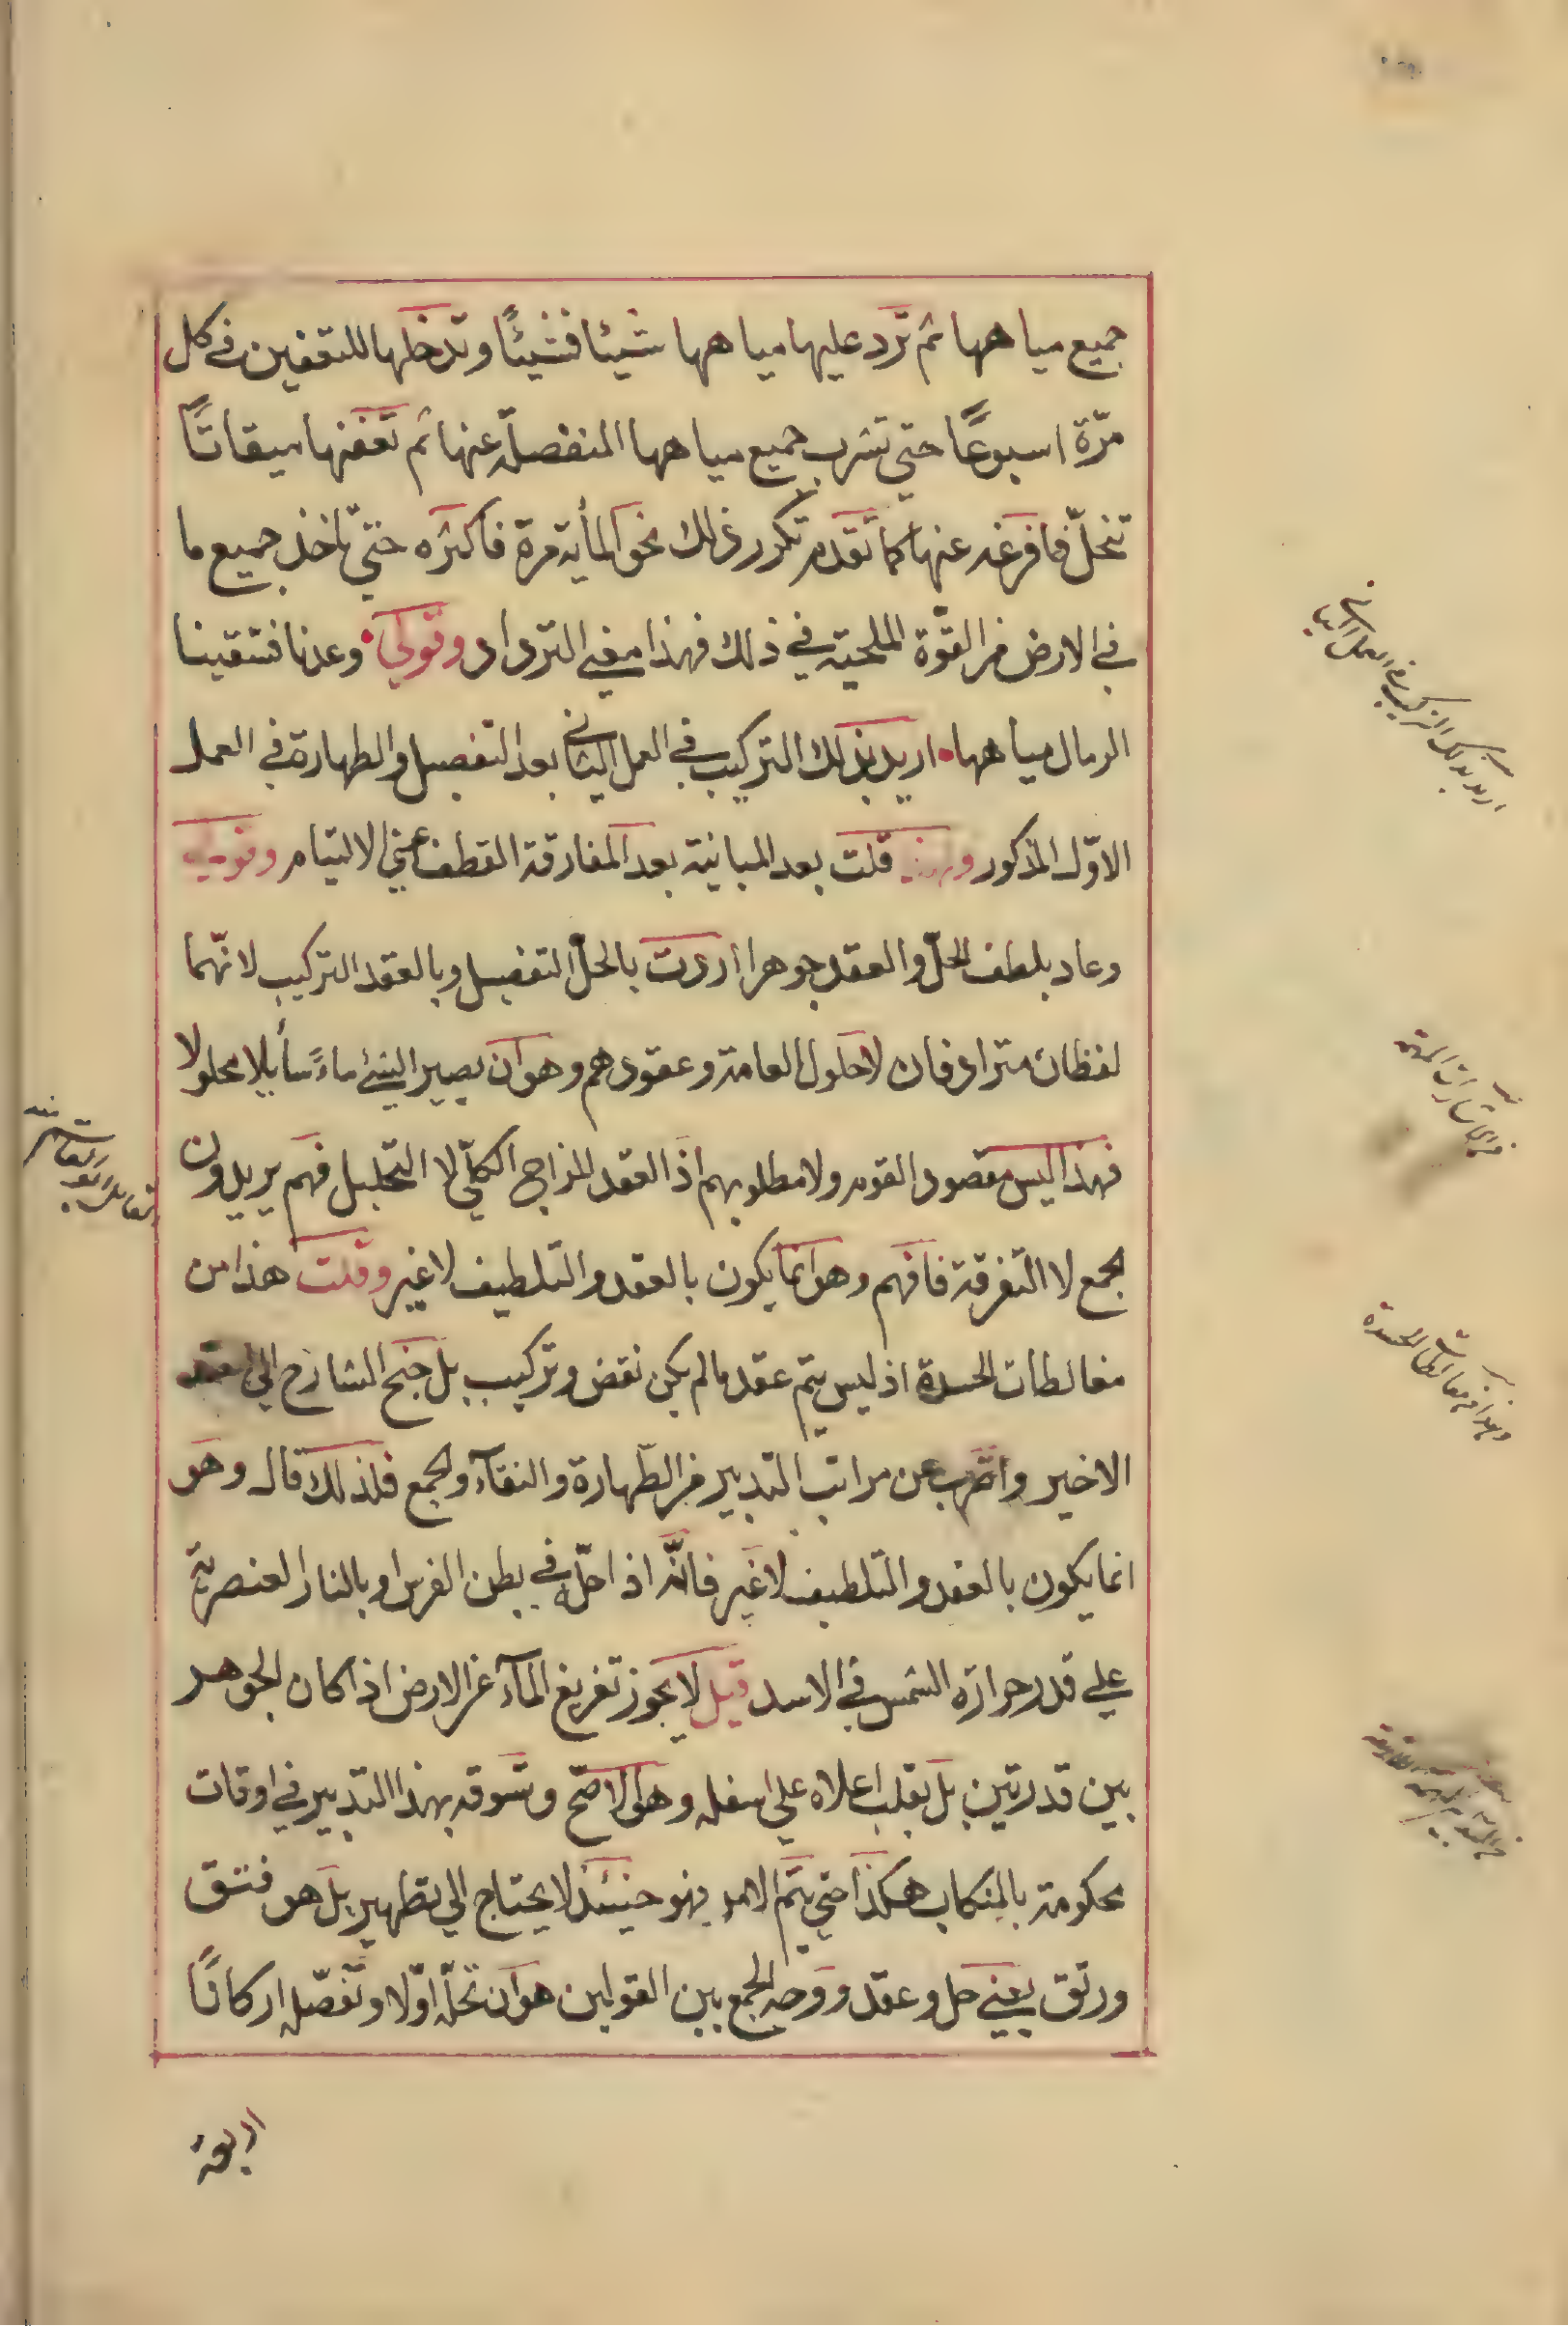 جميع مياهها ثم ترد عليها مياهها شيئا فشيئًا وتدخلها للتعفين في كل
مرّة اسبوعًا حتى تشرب جميع مياهها المنفصلة عنها ثم تعفنها ميقاتًا
تنحلّ فما فرغه عنها كما تقدم تكرر ذلك نحو المأية مرة فاكثره حتى تاخذ جميع ما
في الارض من القوّة الملحية في ذلك فهذا معنى الترداد وقولي وعدنا فتقينا
الرمال مياهها اريد بذلك التركيب في العمل الثاني بعد التفصيل والطهارة في العمل
الاوّل المذكور ولهذا قلت بعد المباينة بعد المفارقة القطف عنى الالتيام وقولي
وعاد بلطف الحلّ والعقد جوهرا اردت بالحلّ التفصيل وبالعقد التركيب لانّهما
لفظان مترادفان لا حلول العامة وعقودهم وهو ان يصير الشئ ماءً سأيلا محلولا
فهذا ليس مقصود القوم ولا مطلوبهم اذ العقد للزاج الكلّي لا التحليل فهم يريدون
الجمع لا التفرقة فافهم وهو انما يكون بالعقد والتلطيف لا غير وقلت هذا من
مغالطات الحسدة اذ ليس يتم عقد ما لم يكن نقض وتركيب بل جنح الشارح الى العقد
الاخير واضرب عن مراتب التدبير من الطّهارة والنقآء والجمع فلذلك قال وهو
انما يكون بالعقد والتلطيف لا غير فانّه اذا حلّه في بطن الفرس او بالنار العنصرية
على قدر حرارة الشمس في الاسد قيل لا يجوز تفريغ المآء عن الارض اذا كان الجوهر
بين قدرتين بل يقلب اعلاه على اسفله وهو الاصحّ وتسوقه بهذا التدبير في اوقات
محكومة بالمنكاب هكذا حتى يتم الامر فهو حينئذ لا يحتاج الى تطهير بل هو فتق
ورتق يعني حل وعقد ووجه الجمع بين القولين هو ان تحلّه اوّلا وتفصّله اركانًا
اربعة
اريد بذلك التركيب في العمل الثاني
وهذا من مغالطات الحسدة